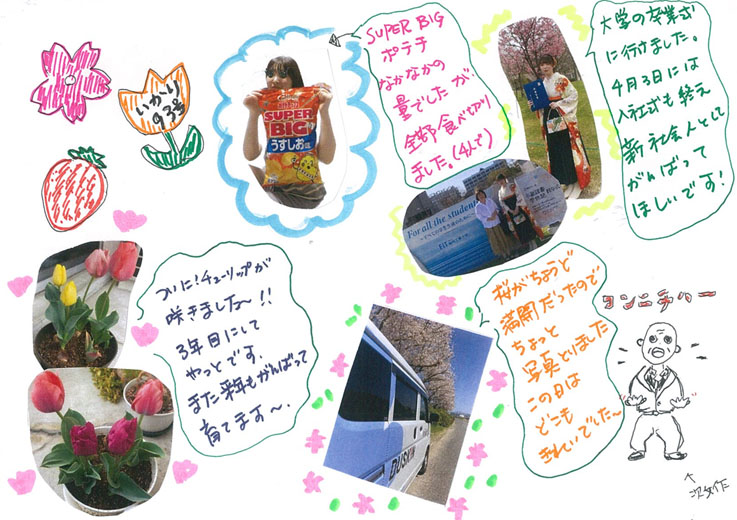 いかり
93号
SUPER
BIG
うすしお味
SUPER BIG
ポテチ
なかなかの
量でしたが、
全部食べきり
ました。(4人で)
大学の卒業式
に行けました。
4月3日には
入社式も終え
新社会人として
がんばって
ほしいです!
For all the student
ついに!チューリップが
咲きました〜!!
3年目にして
やっとです。
また来年もがんばって
育てます〜。
DUSKIN
桜がちょうど
満開だったので
ちょっと
写真とりました
この日は
どこも
きれいでした〜
コンニチハー
↑
次女作